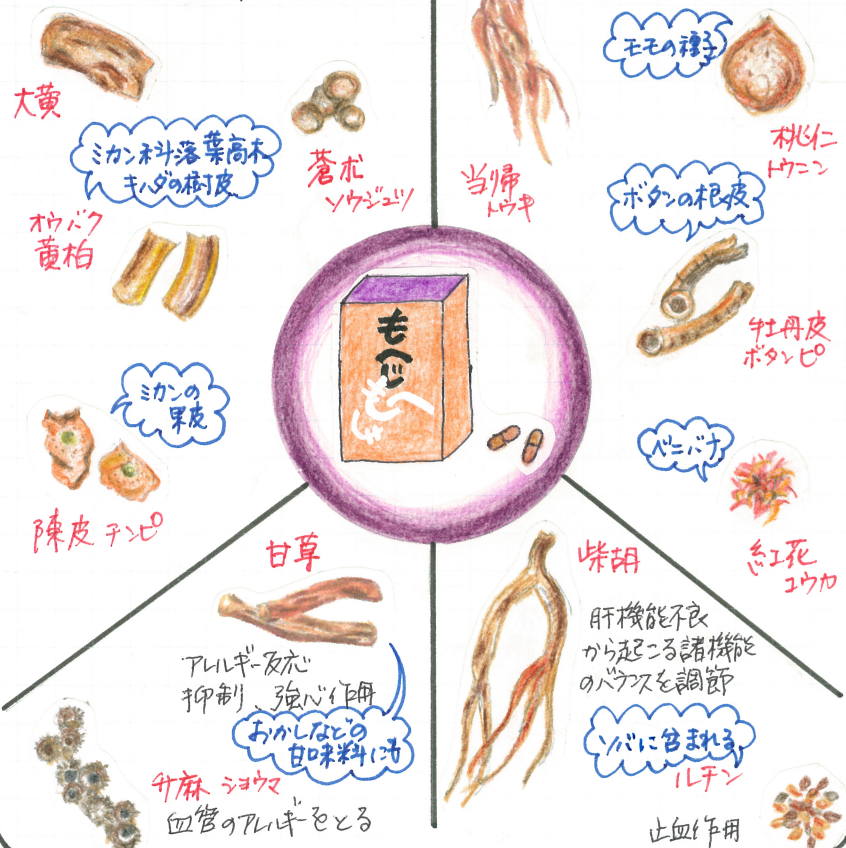 大黄
ミカン科落葉高木
キハダの樹皮
蒼朮
ソウジュツ
オウバク
黄柏
ミカンの
果皮
陳皮 チンピ
当帰
トウキ
モモの種子
桃仁
トウニン
ボタンの根皮
牡丹皮
ボタンピ
ベニバナ
紅花
コウカ
もへじ
へもじ
甘草
アレルギー反応
抑制、強心作用
おかしなどの
甘味料にも
升麻 ショウマ
血管のアレルギーをとる
柴胡
肝機能不良
から起こる諸機能
のバランスを調節
ソバに含まれる
ルチン
止血作用